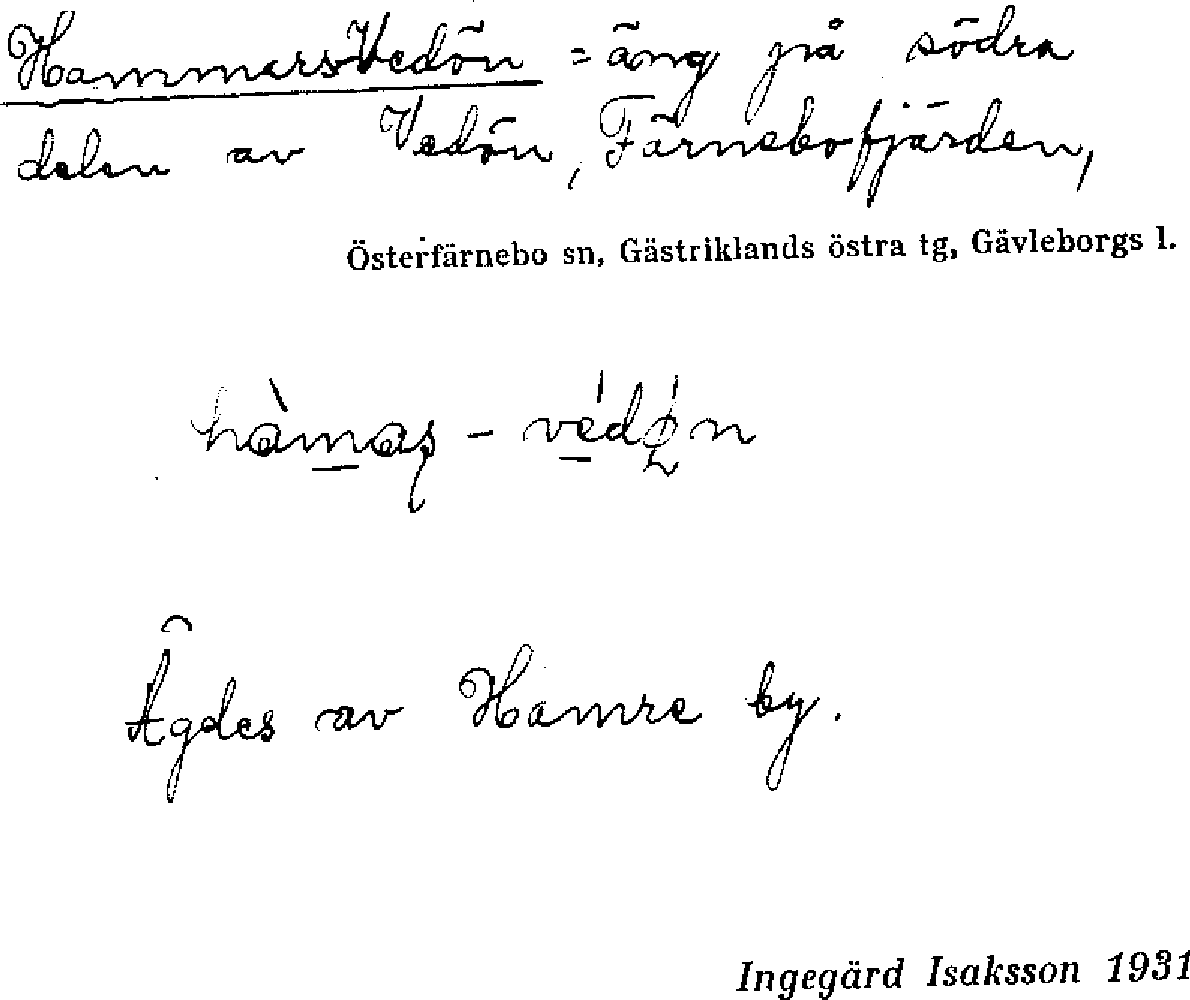 HammarsVedön = äng på södra
delen av Vedön, Färnebofjärden,
Österfärnebo sn, Gästriklands östra tg, Gävleborgs l.
hàmaʂ - védǿ̨n
Ägdes av Hamre by.
Ingegärd Isaksson 1931